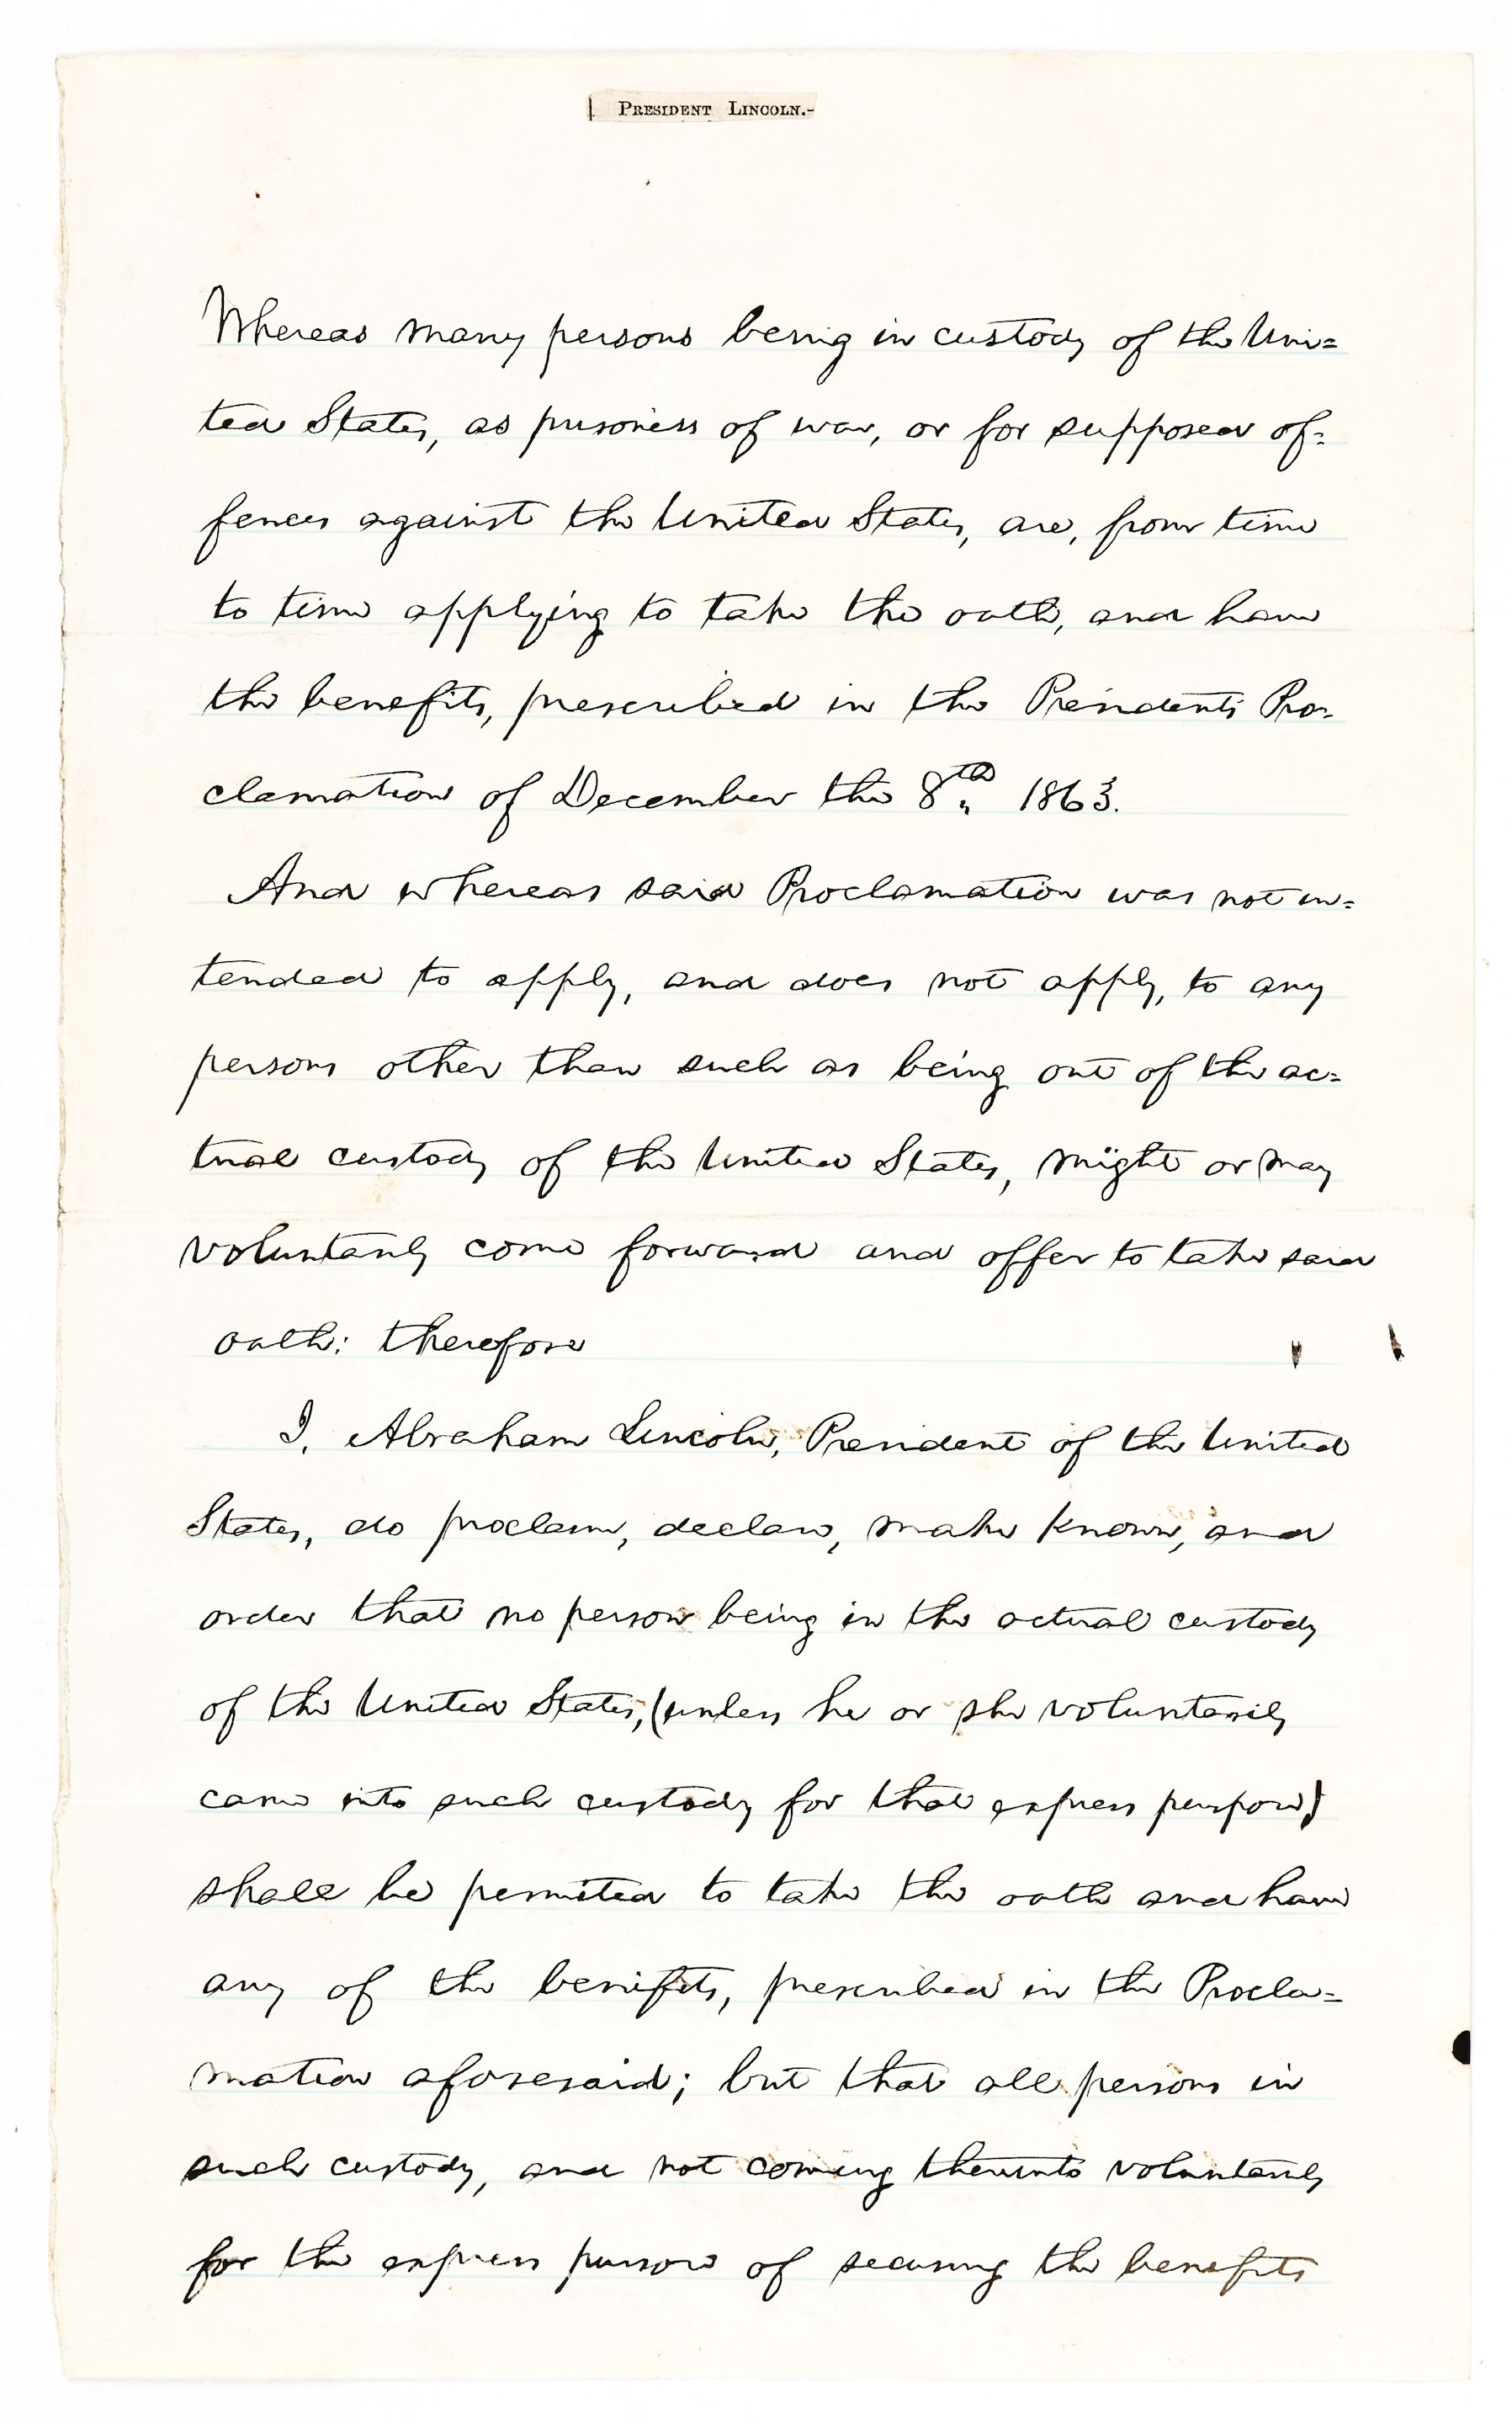 PRESIDENT LINCOLN.-
Whereas many persons being in custody of the Uni=
ted States, as prisoners of war, or for supposed of=
fences against the United States, are, from time
to time applying to take the oath, and have
the benefits, prescribed in the Presidents Pro=
clamation of December the 8th 1863.
And whereas said Proclamation was not in=
tended to apply, and does not apply, to any
persons other than such as being out of the ac=
tual custody of the United States, might or may
voluntarily come forward and offer to take said
oath: therefore
I, Abraham Lincoln, President of the United
States, do proclaim, declare, make known, and
order that no person being in the actual custody
of the United States, (unless he or she voluntarily
came into such custody for that express purpose)
shall be permited to take the oath and have
any of the benifits, prescribed in the Procla=
mation aforesaid; but that all persons in
such custody, and not coming thereunto voluntarily
for the express purpose of securing the benefits